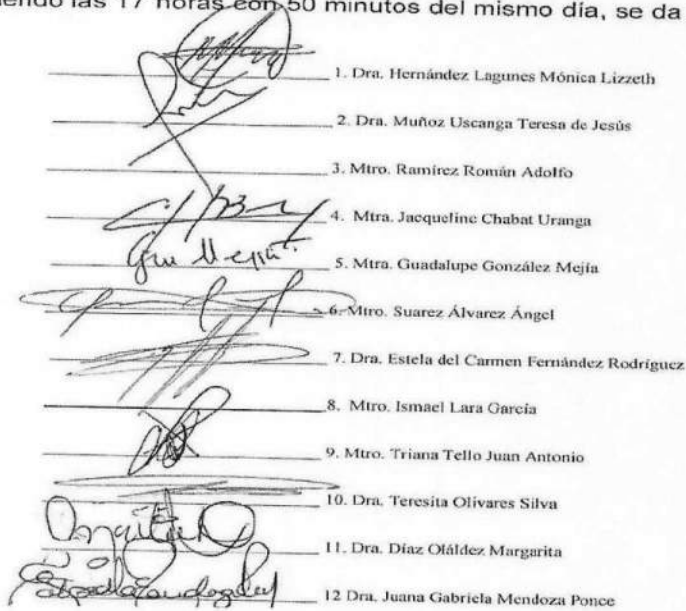 endo las 17 horas con 50 minutos del mismo día, se da
1. Dra. Hernández Lagunes Mónica Lizzeth
2. Dra. Muñoz Uscanga Teresa de Jesús
3. Mtro. Ramírez Román Adolfo
4. Mtra. Jacqueline Chabat Uranga
5. Mtra. Guadalupe González Mejía
6. Mtro. Suarez Álvarez Ángel
7. Dra. Estela del Carmen Fernández Rodríguez
8. Mtro. Ismael Lara García
9. Mtro. Triana Tello Juan Antonio
10. Dra. Teresita Olivares Silva
11. Dra. Díaz Oláldez Margarita
12 Dra. Juana Gabriela Mendoza Ponce